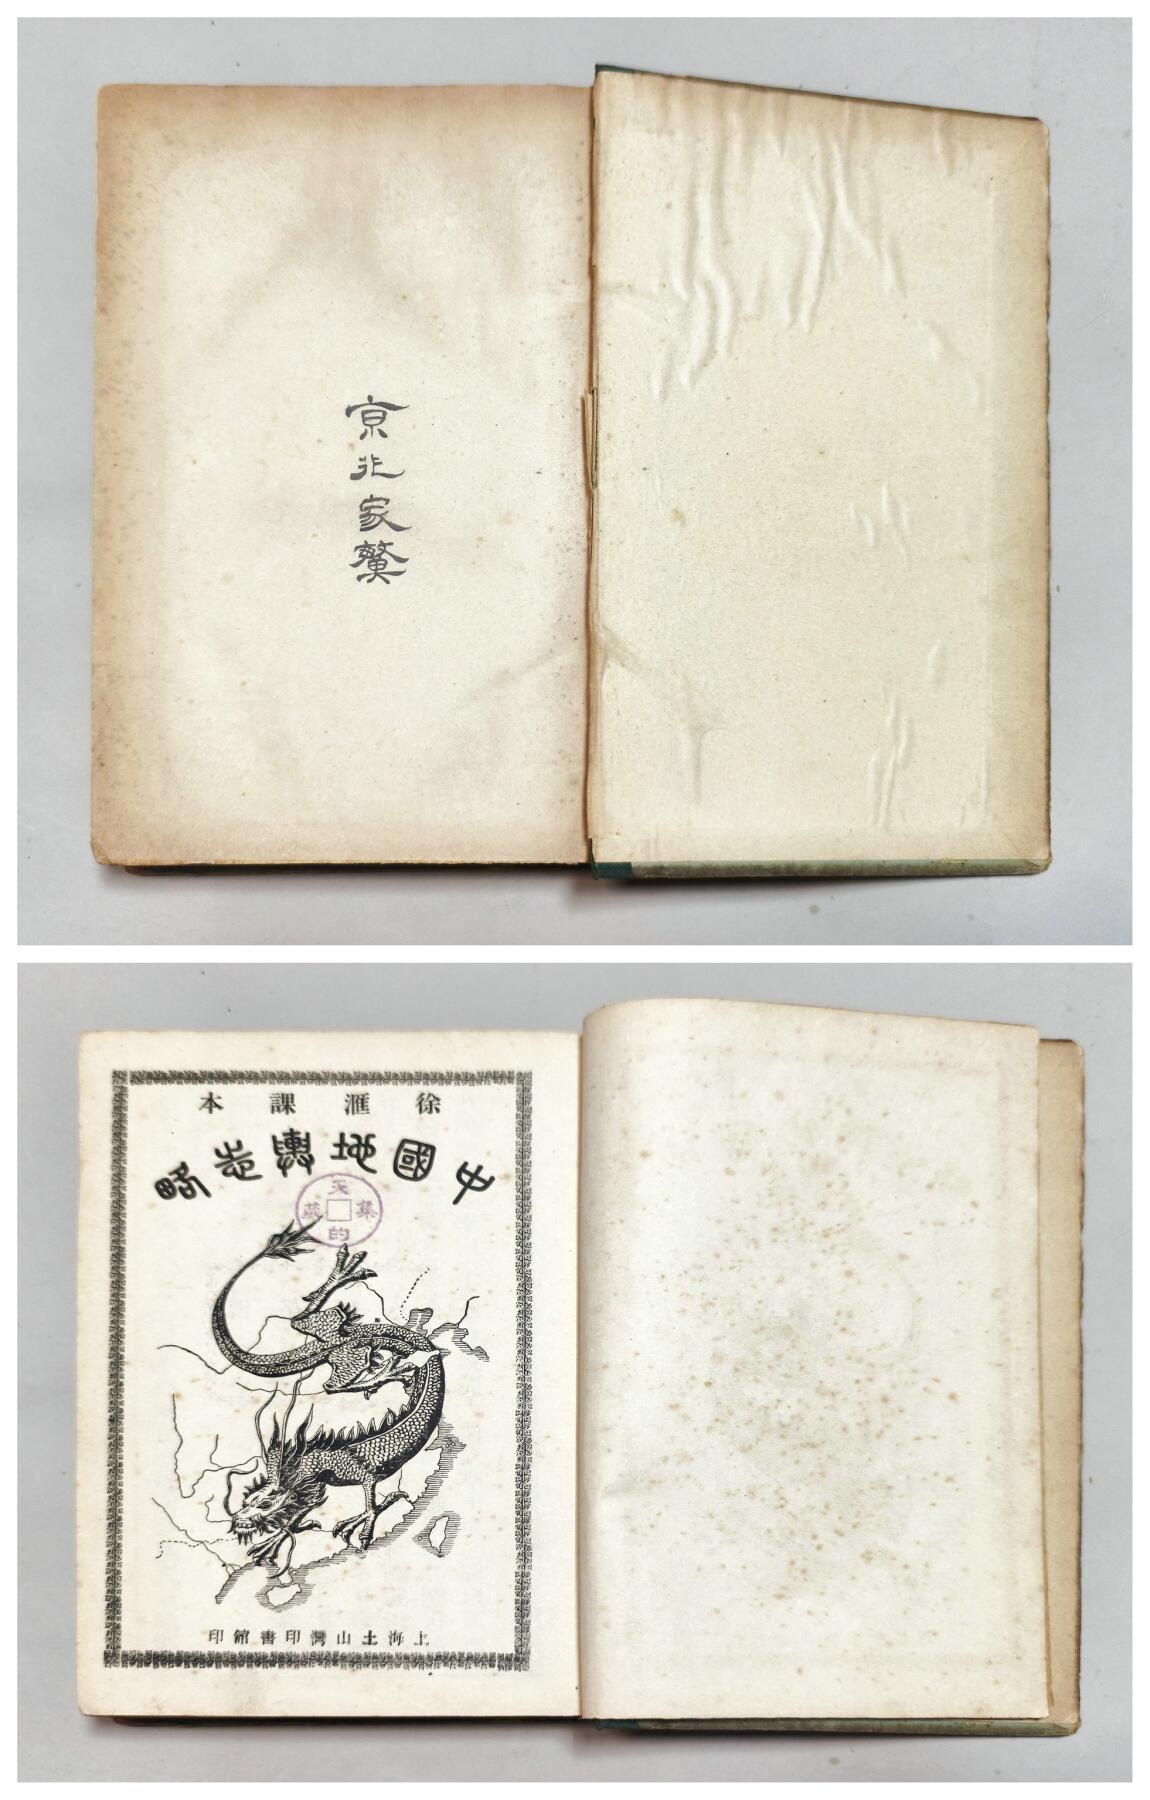 京北家
徐滙課本
中國地輿志略
天的集
上海土山灣印書館印